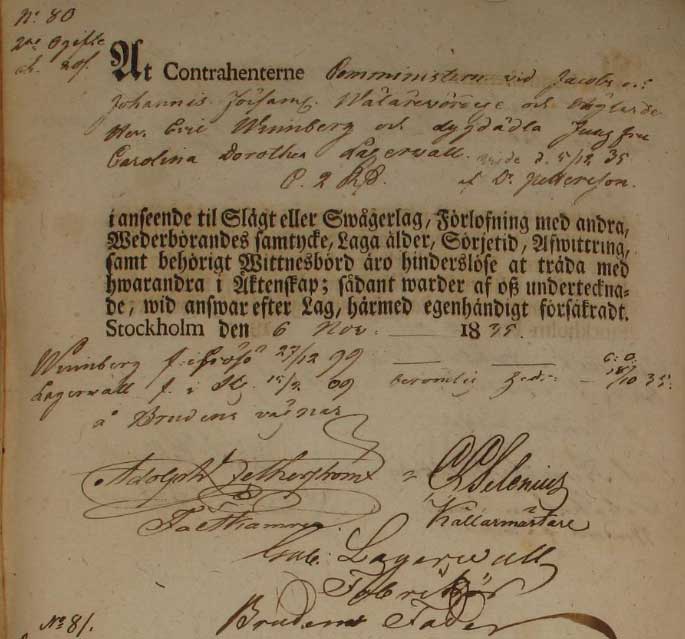 No: 80
2ne Ogifte
At Contrahenterne Comministern vid Jacobs och
Johannis Församl. Wälärevördige och
Hrr. Eric Wennberg och dygdädla Jungfru
Carolina Dorothea Lagerwall. d. 5/12 35
P. 2 RD. af Dr Pettersson.
i anseende til Slägt eller Swågerlag, Förlofning med andra,
Wederbörandes samtycke, Laga ålder, Sörjetid, Afwittring,
samt behörigt Wittnesbörd äro hinderslöse at träda med
hwarandra i Äktenskap; sådant warder af oß underteckna-
de, wid answar efter Lag, härmed egenhändigt försäkradt.
Stockholm den 6 Nov. 1835.
Wennberg f. i Frösö 27/12 99
Lagerwall f. i 15/2 09 18/10 35.
å Brudens vägnar
Adolph Zethershom
Källarmästare
Gab. Lagerwall
Fabrikör
Brudens Fader
No: 81.